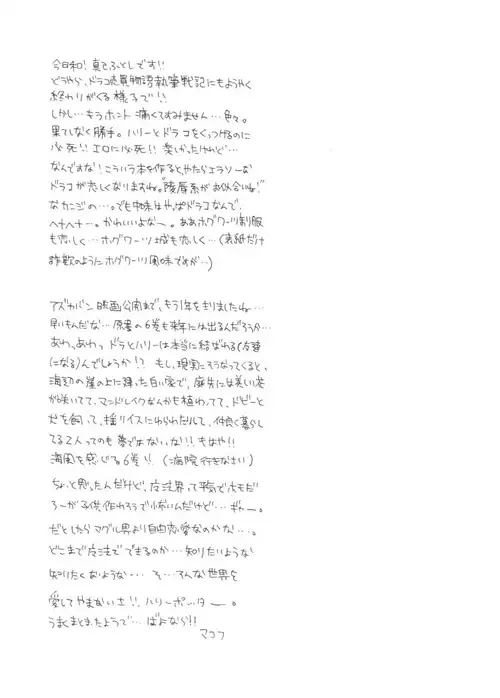 今日和! 真てふとしです!!
どうやら、ドラコ漬異物語執筆戦記にもようやく
終わりがくる様子で!!
しかし…もうホント痛くてすみません…色々。
果てしなく勝手。ハリーとドラコをくっつけるのに
必死!! エロに必死!! 楽しかったけれど…
なんですな! こういう本を作ると、やたらエラソーな
ドラコが恋しくなりますね。"陵辱系がお似合いね!"
なカンジの…。でも中味はやっぱドラコなんで、
へナへナ〜。かわいいよな〜。ああホグワーツ制服
も恋しく…ホグワーツ城も恋しく…(表紙だけ
詐欺のようにホグワーツ風味ですが…)
アズカバン映画公開まで、もう1年を切りましたね…
早いもんだな…原書の6巻も来年には出るんだろうか…
あわ、あわっ ドラとハリーは本当に結ばれる(友達
になる)んでしょうか!? もし、現実にそうなってくると、
海辺の崖の上に建った白い家で、庭先には美しい花
が咲いてて、マンドレイクなんかも植わってて、ドビーと
犬を飼って、揺りイスにゆられたりして、仲良く暮らし
てる2人ってのも夢ではないな!!! もはや!!
海風を感じる6巻!! (病院行きなさい)
ちょっと思ったんだけど、魔法界って平気でホモだ
ろーが子供作れそうで怖いんだけど…ギャー。
だとしたらマグル界より自由恋愛なのかな…。
どこまで魔法でできるのか…知りたいような
知りたくないような… そ…そんな世界を
愛してやまない!! ハリーポッター。
うまくまとまったようで… さよなら!!
マコフ